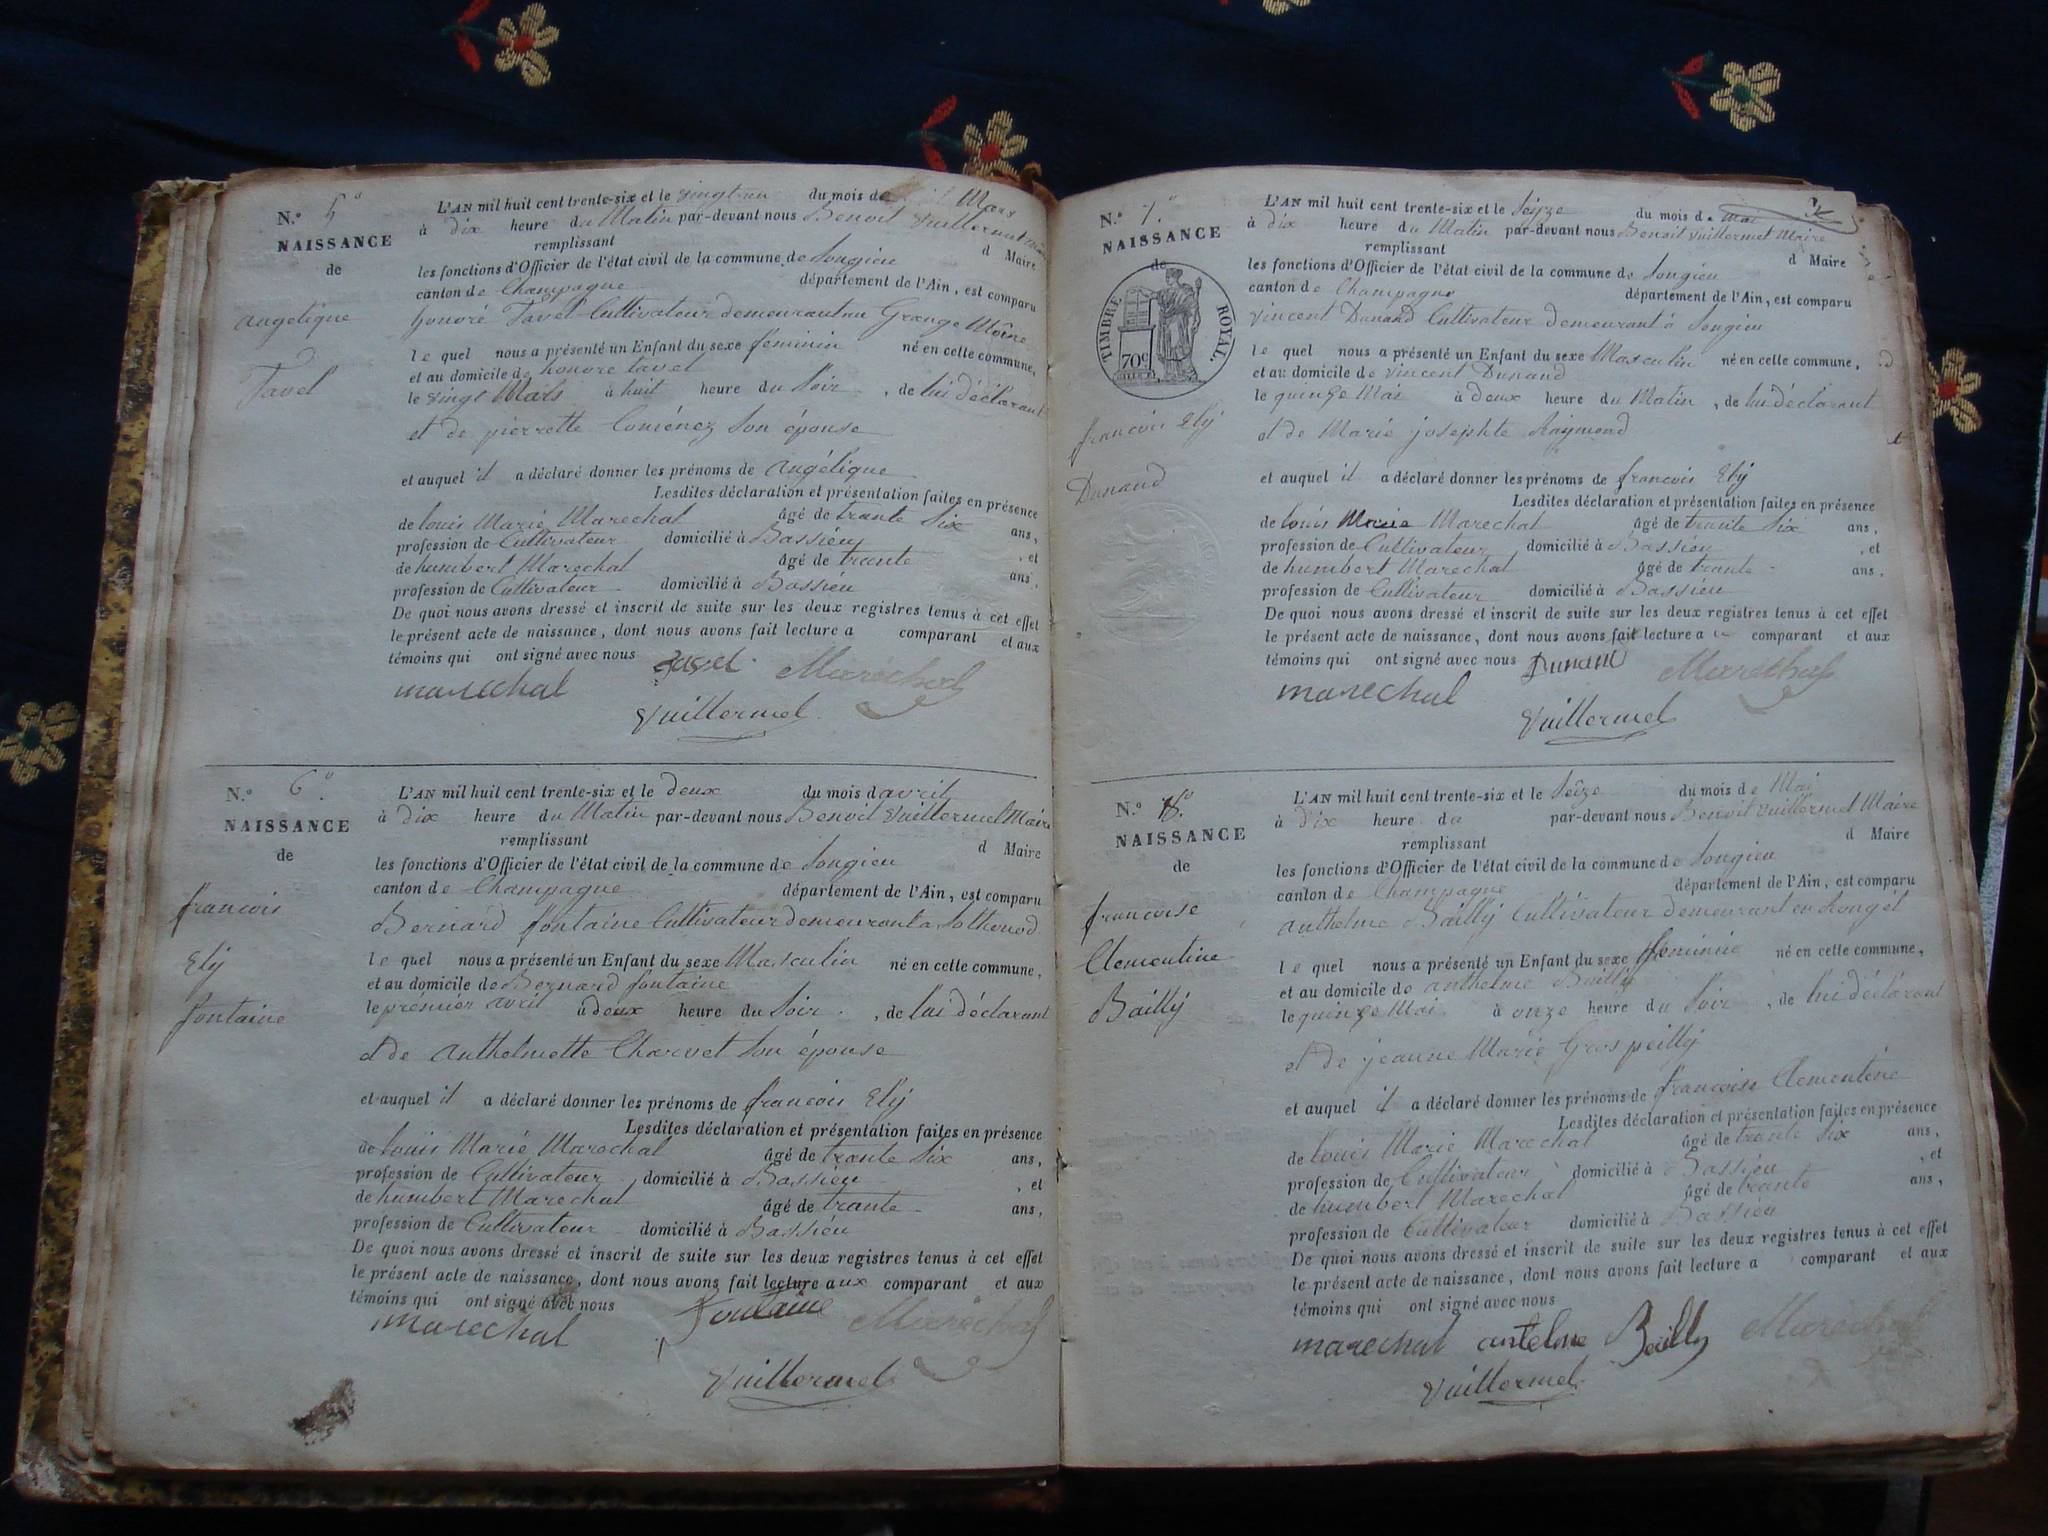 N.° 5°
NAISSANCE
de
angelique
Tavel
L'AN mil huit cent trente-six et le vingt un du mois de Mars
à dix heure du Matin par-devant nous Benoit Vuillermet Maire
remplissant d Maire
les fonctions d'Officier de l'état civil de la commune de Songieu
canton de Champagne département de l'Ain, est comparu
honoré Tavel Cultivateur demeurant au Grange Moine
le quel nous a présenté un Enfant du sexe féminin né en cette commune,
et au domicile de honoré tavel
le vingt Mars à huit heure du Soir, de lui déclarant
et de pierrette son épouse
et auquel il a déclaré donner les prénoms de angélique
Lesdites déclaration et présentation faites en présence
de louis Marie Marechal âgé de trante six ans,
profession de Cultivateur domicilié à Bassieu, et
de humbert Marechal âgé de trante ans,
profession de Cultivateur domicilié à Bassieu
De quoi nous avons dressé et inscrit de suite sur les deux registres tenus à cet effet
le présent acte de naissance, dont nous avons fait lecture a comparant et aux
témoins qui ont signé avec nous Tavel Maréchal
marechal
Vuillermet
N.° 6°
NAISSANCE
de
francois
Elij
fontaine
L'AN mil huit cent trente-six et le deux du mois d avril
à dix heure du Matin par-devant nous Benoit Vuillermet Maire
remplissant d Maire
les fonctions d'Officier de l'état civil de la commune de Songieu
canton de Champagne département de l'Ain, est comparu
Bernard fontaine Cultivateur demeurant a Sothonod
le quel nous a présenté un Enfant du sexe Masculin né en cette commune,
et au domicile de Bernard fontaine
le premier avril à deux heure du Soir, de lui déclarant
et de anthelmette Charvet son épouse
et auquel il a déclaré donner les prénoms de francois Elij
Lesdites déclaration et présentation faites en présence
de louis Marie Marechal âgé de trante six ans,
profession de Cultivateur domicilié à Bassieu, et
de humbert Marechal âgé de trante ans,
profession de Cultivateur domicilié à Bassieu
De quoi nous avons dressé et inscrit de suite sur les deux registres tenus à cet effet
le présent acte de naissance, dont nous avons fait lecture aux comparant et aux
témoins qui ont signé avec nous
marechal fontaine Maréchal
Vuillermet
N.° 7°
NAISSANCE
de
TIMBRE ROYAL.
70c
francois Elij
Dunand
L'AN mil huit cent trente-six et le seize du mois de Mai
à dix heure du Matin par-devant nous Benoit Vuillermet Maire
remplissant d Maire
les fonctions d'Officier de l'état civil de la commune de Songieu
canton de Champagne département de l'Ain, est comparu
vincent Dunand Cultivateur demeurant à Songieu
le quel nous a présenté un Enfant du sexe Masculin né en cette commune,
et au domicile de vincent Dunand
le quinze Mai à deux heure du Matin, de lui déclarant
et de Marie josephte Raymond
et auquel il a déclaré donner les prénoms de francois Elij
Lesdites déclaration et présentation faites en présence
de louis Marie Marechal âgé de trante six ans,
profession de Cultivateur domicilié à Bassieu, et
de humbert Marechal âgé de trante ans,
profession de Cultivateur domicilié à Bassieu
De quoi nous avons dressé et inscrit de suite sur les deux registres tenus à cet effet
le présent acte de naissance, dont nous avons fait lecture a u comparant et aux
témoins qui ont signé avec nous Dunand Maréchal
marechal
Vuillermet
N.° 8°
NAISSANCE
de
francoise
Clementine
Baillij
L'AN mil huit cent trente-six et le seize du mois de Mai
à dix heure du par-devant nous Benoit Vuillermet Maire
remplissant d Maire
les fonctions d'Officier de l'état civil de la commune de Songieu
canton de Champagne département de l'Ain, est comparu
anthelme Baillij Cultivateur demeurant en
le quel nous a présenté un Enfant du sexe féminin né en cette commune,
et au domicile de anthelme Baillij
le quinze Mai à onze heure du Soir, de lui déclarant
et de jeanne Marie Grospeillij
et auquel il a déclaré donner les prénoms de francoise Clementine
Lesdites déclaration et présentation faites en présence
de louis Marie Marechal âgé de trante six ans,
profession de Cultivateur domicilié à Bassieu, et
de humbert Marechal âgé de trante ans,
profession de Cultivateur domicilié à Bassieu
De quoi nous avons dressé et inscrit de suite sur les deux registres tenus à cet effet
le présent acte de naissance, dont nous avons fait lecture a comparant et aux
témoins qui ont signé avec nous
marechal antelme Bailly Maréchal
Vuillermet